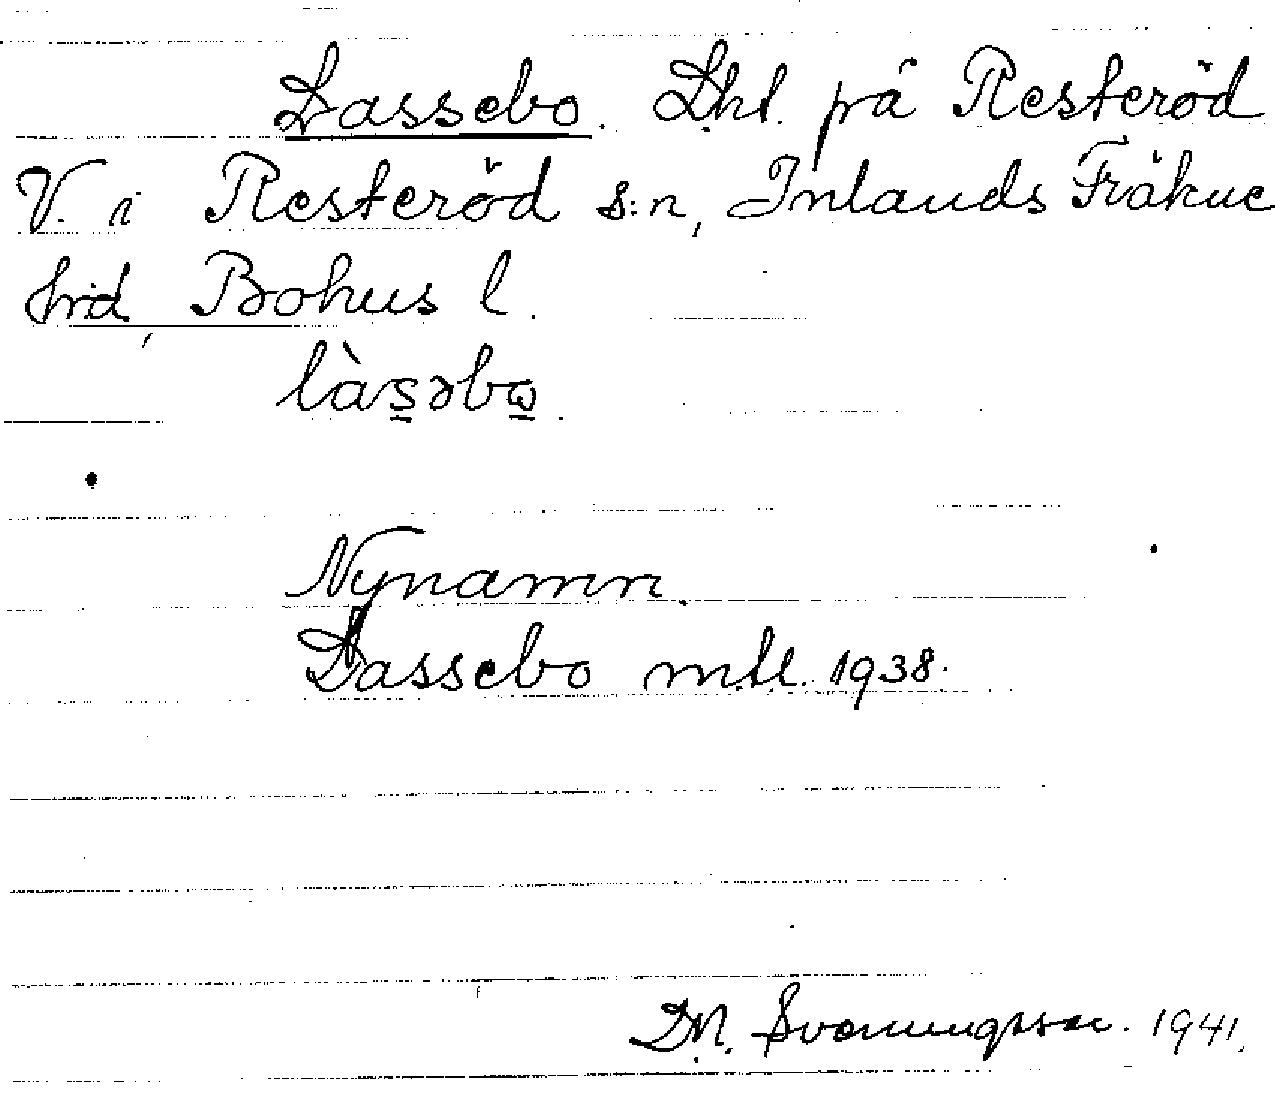 Lassebo. Lht. på Resteröd
V. i Resteröd s:n, Inlands Fräkne
hrd, Bohus l.
làs̠əbɷ̠.
Nynamn.
Lassebo mtl. 1938.
D.N. Svanungsson. 1941.